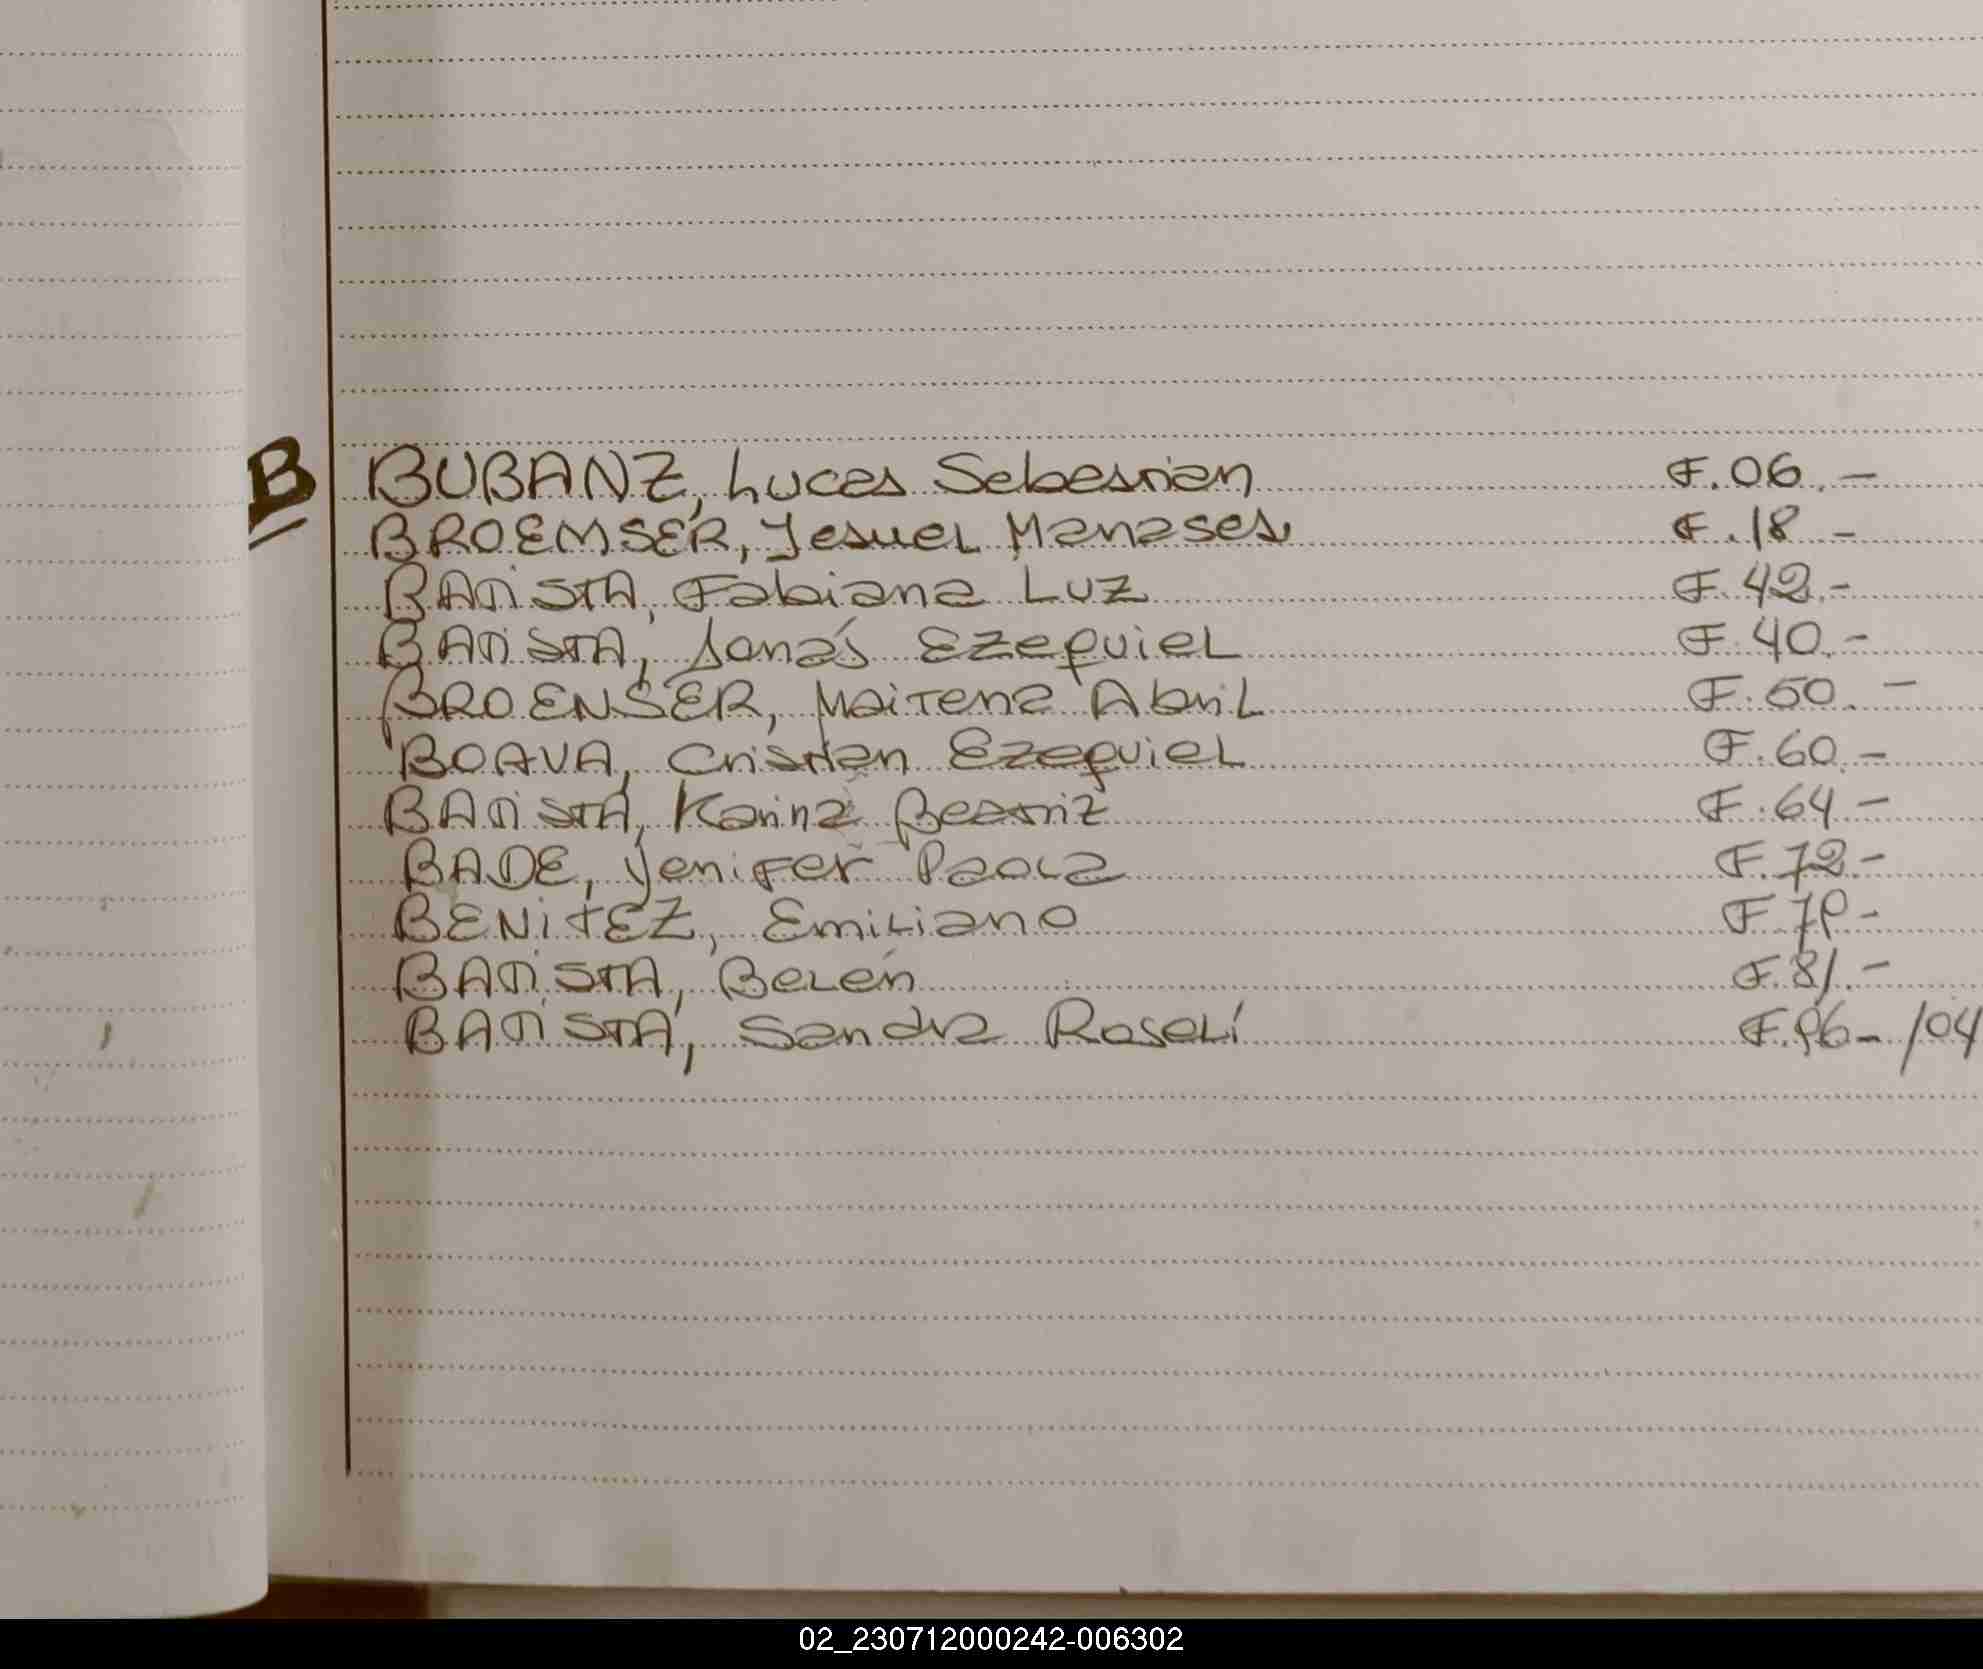 B
BUBANZ, Lucas Sebastian F.06.-
BROEMSER, Jesuel Manases F.18-
BATISTA, Fabiana Luz F.42.-
BATISTA, Jonás Ezequiel F.40.-
BROENSER, Maitena Abril F.50.-
BOAVA, Cristian Ezequiel F.60.-
BATISTA, Karina Beatriz F.64-
BADE, Yenifer Paola F.72.-
BENITEZ, Emiliano F.79-
BATISTA, Belén F.81.-
BATISTA, Sandra Roselí F.96-/04
02_230712000242-006302